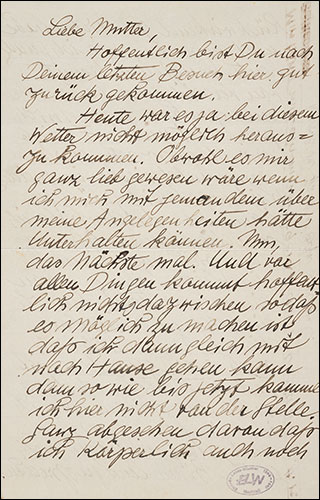 Liebe Mutter,
Hoffentlich bist Du nach
Deinem letzten Besuch hier gut
zurück gekommen.
Heute war es ja bei diesem
Wetter nicht möglich heraus=
zu kommen. Obwohl es mir
ganz lieb gewesen wäre wenn
ich mich mit jemandem über
meine Angelegenheiten hätte
unterhalten können. Nun,
das Nächste mal. Und vor
allen Dingen kommt hoffent
lich nichts dazwischen sodaß
es möglich zu machen ist
daß ich dann gleich mit
nach Hause gehen kann
denn so wie bis jetzt komme
ich hier nicht von der Stelle.
Ganz abgesehen davon daß
ich körperlich auch noch
ELW